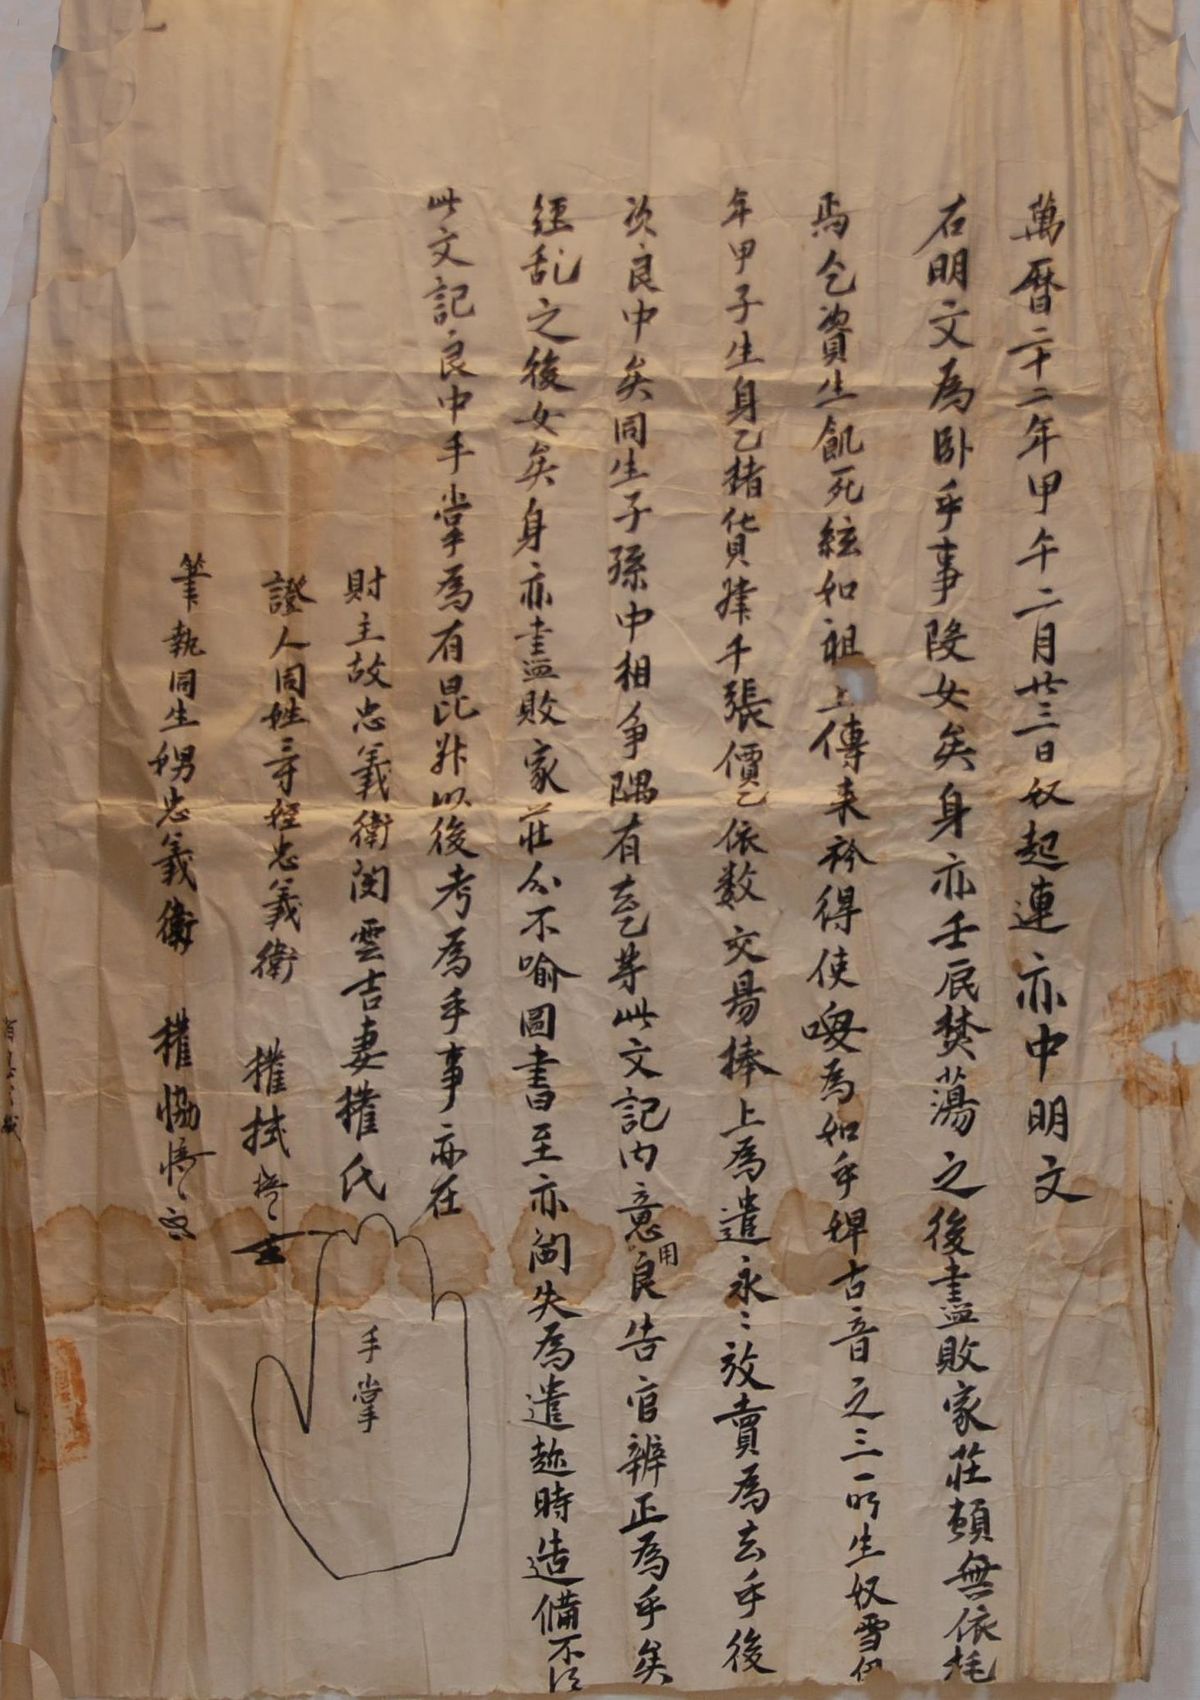 萬曆二十二年甲午二月廿三日奴起連亦中明文
右明文爲卧乎事段女矣身亦壬辰焚蕩之後盡敗家莊頓無依托
爲乞資生飢死絃如祖上傳来衿得使喚爲如乎婢古音之三所生奴雪
年甲子生身乙楮貨肆千張價乙依数交昜捧上爲遣永〻放賣爲去乎後
次良中矣同生子孫中相争隅有去乙等此文記内意用良告官辨正爲乎矣
經乱之後女矣身亦盡敗家莊叱分不喻圖書至亦閪失爲遣趂時造備不
此文記良中手掌爲有昆 以後考爲乎事亦在
財主故忠義衛閔雲吉妻權氏
手掌
證人同姓三寸姪忠義衛 權拭
筆執同生娚忠義衛 權恊